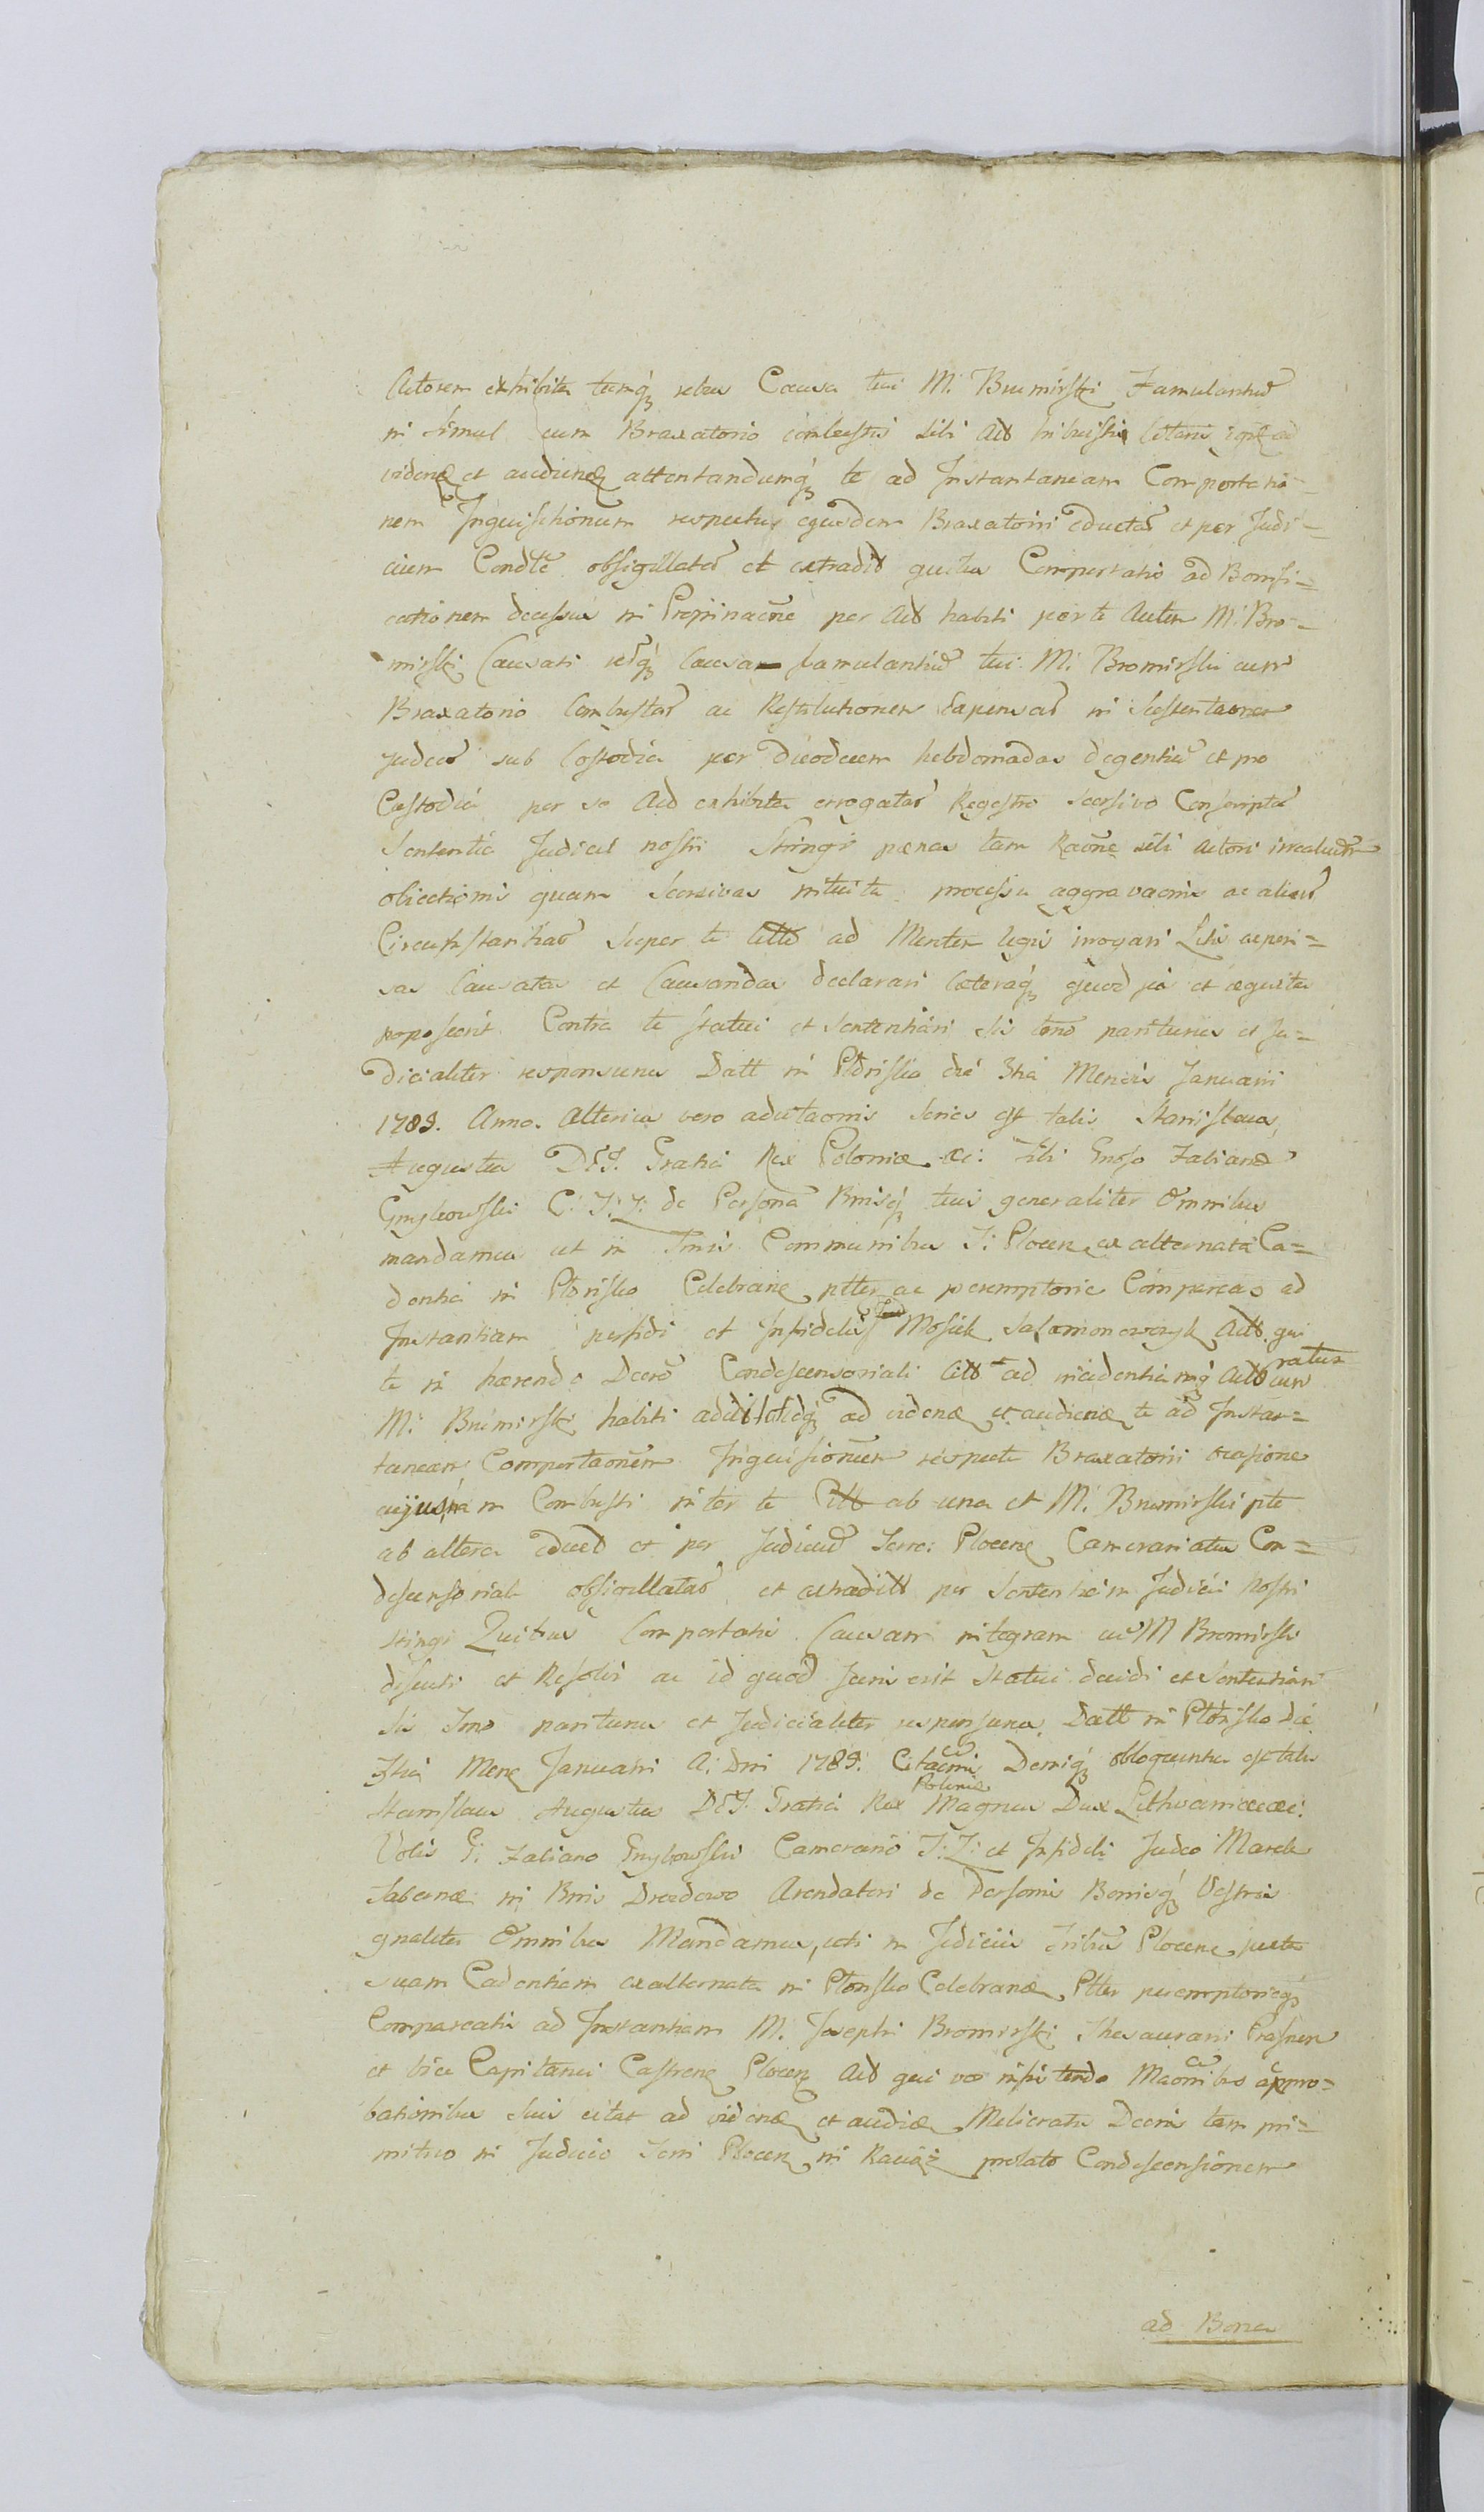 Actorem exhibita teamq̃ rebus Causa tui M. Bromirski Famulantiũ
in simul cum Braxatorio combustis sibi Act tribuisti citaris
videnꝫ et audienꝫ attentandumq̃ te ad Instantaneam Comportatio=
nem Inquisitionum respectus ejusdem Braxatorii eductaȓ et per Judi=
cium Condte obsigillataȓ et extradit quibus Comportatis ad Bonifi=
cationem decessus in Propinaõne per Act habiti per te Autem M. Bro=
mirski Causati Causa famulantiũ tui M. Bromirski cum
Braxatorio Combustaȓ ac Restitutionem Expensaȓ in Sustentaonem
Judeoȓ sub Costodia per duodecem hebdomadas degentiũ et pro
Castodia per se Act exhibita errogataȓ Regestro seorsivo Conscriptaȓ
Sententia Judicii nostri Stringi pœnas tam Raõne sibi Actori
objectionis quam seorsivas intuitu processu aggravaonis ac aliaȓ
Circumstantiaȓ super te citto ad Mentem legis irrogari Litis expen=
sas Causatas et Causandas declarari cæteraq̃ quod jus et æquitas
poposcerit Contra te statui et sententiari sis tmo pariturus et Ju=
dicialiter responsurus Datt in Płońsko die 3tia Mensis Januarii
1789. Anno. Alterius vero adcitaonis series est talis Stanislaus
Augustus D: G. Gratia Rex Poloniæ &c: Tibi Gnoso Fabiano
Gnykowski C: T: Z: de Persona Bnisq̃ tuis generaliter Omnibus
mandamus ut in Tmis Communibus T: Plocen ex alternata Ca=
dentia in Płońsko Celebranꝫ ptter ac peremptorie Compareas ad
Instantiam perfidi et Infidelis Mosiek Salamonowczyk Act qui
te in hærendo Decro Condescensoriali citt ad incidentiamq̃ Act cum
M: Bromirski habiti ad videnꝫ et audienꝫ te ad Instan=
taneam Comportaonem Inquisitionum respectu Braxatorii occasione
cujusnam Combusti inter te Citt ab una et M: Bromirski pte
ab altera educt et per Judiciũ Terre: Plocenꝫ Camerariatus Con=
descensoriale obsigillataȓ et extraditt per Sententiam Judicii Nostri
stingi Quibus Comportatis Causam integram cũ M Bromirski
discuti et Resolvi ac id quod Juris erit statui decidi et Sententiari
Sis Tmo pariturus et Judicialiter responsurus Datt in Płońsko die
3tia Menꝫ Januarii A: Dni 1789. Citaonis Deniq̃ obloquentia est talis
Stanislaus Augustus D: G. Gratia Rex Poloniæ Magnus Dux Lithvaniæ &c:
Vobis G: Fabiano Gnykowski Camerario T: Z: et Infideli Judeo Marek
Tabernæ in Bnis Drozdowo Arendatori de Personis Bonisq̃ Vestris
gnaliter Omnibus Mandamus, uti in Judiciis Tribus Plocenꝫ juxta
suam Cadentiam exalternata in Płońsko Celebranꝫ Ptter peremptorieq̃
Compareatis ad Instantiam M. Josephi Bromirski Thesaurarii Prasnen
et Vice Capitanei Castrenꝫ Plocenꝫ Act qui vos appro=
bationibus suis citat ad videnꝫ et audienꝫ Meliorati Decris tam pri=
mitivo in Judicio Terri Plocenꝫ in Raciąż prolato Condescensionem
ad Bona